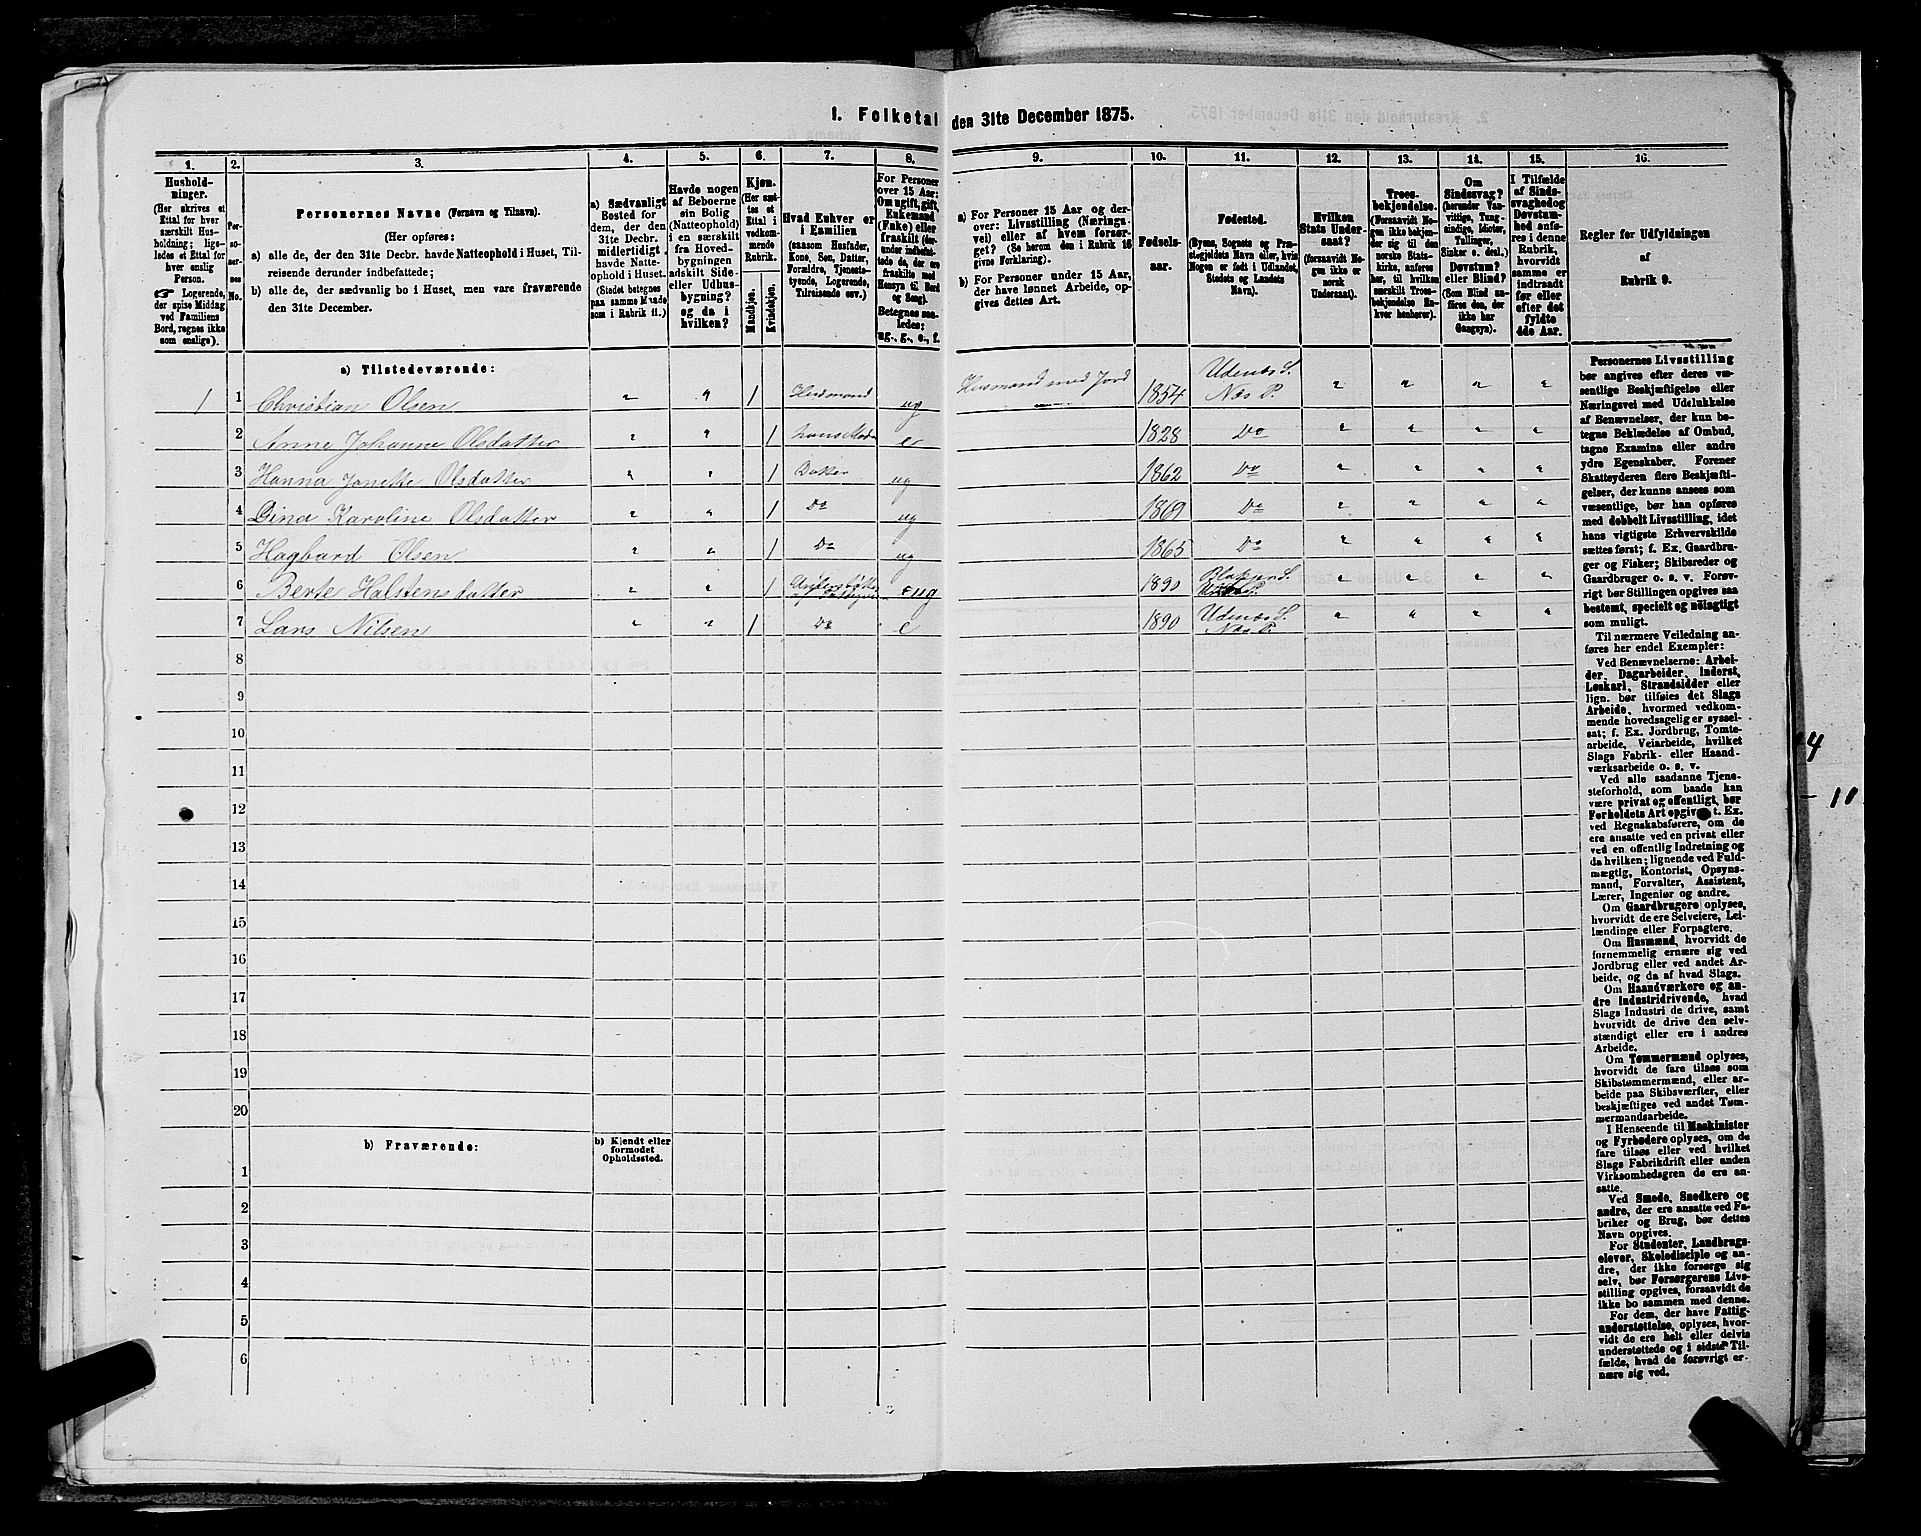 1. Folketal den 31te December 1875.
1. 2. 3. 4. 5. 6. 7. 8. 9. 10. 11. 12. 13. 14. 15. 16.
Hushold-
ninger.
(Her skrives et
Ettal for hver
særskilt Hus-
holdning; lige-
ledes et Ettal for
hver enslig
Person.
☞ Logerende,
der spise Middag
ved Familiens
Bord, regnes ikke
som enslige).
Per-
so-
ner-
nes
No.
Personernes Navne (Fornavn og Tilnavn).
(Her opføres:
a) alle de, der den 31te Decbr. havde Natteophold i Huset, Til-
reisende derunder indbefattede;
b) alle de, der sædvanlig bo i Huset, men vare fraværende
den 31te December.
a) Sædvanligt
Bosted for
dem, der den
31te Decbr.
midlertidigt
havde Natte-
ophold i Huset.
(Stedet betegnes
paa samme Maade
som i Rubrik 11.)
Havde nogen
af Beboerne
sin Bolig
(Natteophold)
i en særskilt
fra Hoved-
bygningen
adskilt Side-
eller Udhus-
bygning?
og da i
hvilken?
Kjøn.
(Her sæt-
tes et
Ettal i
vedkom-
mende
Rubrik.
Mandkjøn.
Kvindekjøn.
Hvad Enhver er
i Familien
(saasom Husfader,
Kone, Søn, Datter,
Forældre, Tjeneste-
tyende, Logerende,
Tilreisende osv.)
For Personer
over 15 Aar:
Om ugift, gift,
Enkemand
(Enke) eller
fraskilt (der-
under indbefat-
tede de, der ere
fraskilte med
Hensyn til Bord
og Seng).
Betegnes saa-
ledes:
ug., g., e., f.
a) For Personer 15 Aar og der-
over: Livsstilling (Nærings-
vei) eller af hvem forsør-
get? (Se herom den i Rubrik 16
givne Forklaring).
b) For Personer under 15 Aar,
der have lønnet Arbeide, op-
gives dettes Art.
Fødsels-
aar.
Fødested.
(Byens, Sognets og Præ-
stegjeldets Navn eller, hvis
Nogen er født i Udlandet,
Stedets og Landets
Navn).
Hvilken
Stats Under-
saat?
(forsaavidt No-
gen ikke er
norsk
Undersaat).
Troes-
bekjendelse.
(Forsaavidt No-
gen ikke bekjen-
der sig til den
norske Stats-
kirke, anføres
her, til hvilken
særskilt Troes-
bekjendelse En-
hver henhører).
Om
Sindssvag?
(herunder Van-
vittige, Tung-
sindige, Idioter,
Tullinger,
Sinker o. desl.)
Døvstum?
eller Blind?
(Som Blind an-
føres den, der
ikke har
Gangsyn).
I Tilfælde
af Sinds-
svaghed og
Døvstum-
hed anfø-
res i denne
Rubrik,
hvorvidt
samme er
indtraadt
før eller
efter det
fyldte
4de Aar.
Regler for Udfyldningen
af
Rubrik 9.
a) Tilstedeværende:
1 1 Christian Olsen " " 1 Husmand ug Husmand med Jord 1854 Udenæs S. Næs P. " " " "
2 Anne Johanne Olsdatter " " 1 hans Moder e 1828 Do " " " "
3 Hanna Janette Olsdatter " " 1 Datter ug 1862 Do " " " "
4 Dina Karoline Olsdatter " " 1 Do ug 1869 Do " " " "
5 Hagbard Olsen " " 1 Do ug 1865 Do " " " "
6 Berte Halstensdatter " " 1 ug 1890 " " " "
7 Lars Nilsen " " 1 Do e 1890 Udenæs S. Næs P. " " " "
8
9
10
11
12
13
14
15
16
17
18
19
20
b) Fraværende:
b) Kjendt eller
formodet
Opholdssted.
1
2
3
4
5
6
Personernes Livsstilling
bør angives efter deres væ-
sentlige Beskjæftigelse eller
Næringsvei med Udelukkelse
af Benævnelser, der kun be-
tegne Beklædelse af Ombud,
tagne Examina eller andre
ydre Egenskaber. Forener
Skatteyderen flere Beskjæfti-
gelser, der kunne ansees som
væsentlige, bør han opføres
med dobbelt Livsstilling, idet
hans vigtigste Erhvervskilde
sættes først; f. Ex. Gaardbru-
ger og Fisker; Skibsreder og
Gaardbruger o. s. v. Forøv-
rigt bør Stillingen opgives saa
bestemt, specielt og nøiagtigt
som muligt.
Til nærmere Veiledning an-
føres her endel Exempler:
Ved Benævnelserne: Arbei-
der, Dagarbeider, Inderst,
Løskarl, Strandsidder eller
lign. bør tilføies det Slags
Arbeide, hvormed vedkom-
mende hovedsagelig er syssel-
sat; f. Ex. Jordbrug, Tomte-
arbeide, Veiarbeide, hvilket
Slags Fabrik- eller Haand-
værksarbeide o. s. v.
Ved alle saadanne Tjene-
steforhold, som baade kan
være privat og offentligt, bør
Forholdets Art opgives t. Ex.
ved Regnskabsførere, om de
ere ansatte ved en privat eller
ved en offentlig Indretning og
da hvilken; lignende ved Fuld-
mægtig, Kontorist, Opsyns-
mand, Forvalter, Assistent,
Lærer, Ingeniør og andre.
Om Gaardbrugere oplyses,
hvorvidt de ere Selveiere, Lei-
lændinge eller Forpagtere.
Om Husmænd, hvorvidt de
fornemmelig ernære sig ved
Jordbrug eller ved andet Ar-
beide, og da af hvad Slags.
Om Haandværkere og an-
dre Industridrivende, hvad
Slags Industri de drive, samt
hvorvidt de drive den selv-
stændigt eller ere i andres
Arbeide.
Om Tømmermænd oplyses,
hvorvidt de fare tilsøs som
Skibstømmermænd, eller ar-
beide paa Skibsværfter, eller
beskjæftiges ved andet Tøm-
mermandsarbeide.
I Henseende til Maskinister
og Fyrbødere oplyses, om de
fare tilsøs eller ved hvilket
Slags Fabrikdrift eller anden
Virksomhedsgren de ere an-
satte.
Ved Smede, Snedkere og
andre, der ere ansatte ved Fa-
briker og Brug, bør dettes
Navn opgives.
For Studenter, Landbrugs-
elever, Skoledisciple og an-
dre, der ikke forsørge sig
selv, bør Forsørgerens Livs-
stilling opgives, forsaavidt de
ikke bo sammen med denne.
For dem, der have Fattig-
understøttelse, oplyses, hvor-
vidt de ere helt eller delvis
understøttede og i sidste Til-
fælde, hvad de forøvrigt er-
nære sig ved.